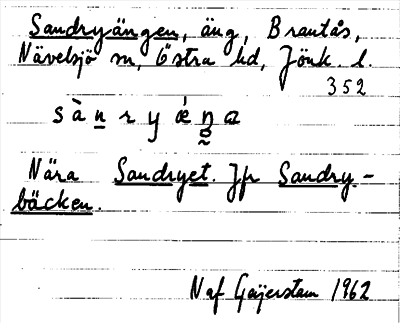 Sandryängen, äng, Brantås,
Nävelsjö sn, Östra hd, Jönk. l.
352
sànryǽŋa
Nära Sandryet. Jfr Sandry-
bäcken.
N af Geijerstam 1962